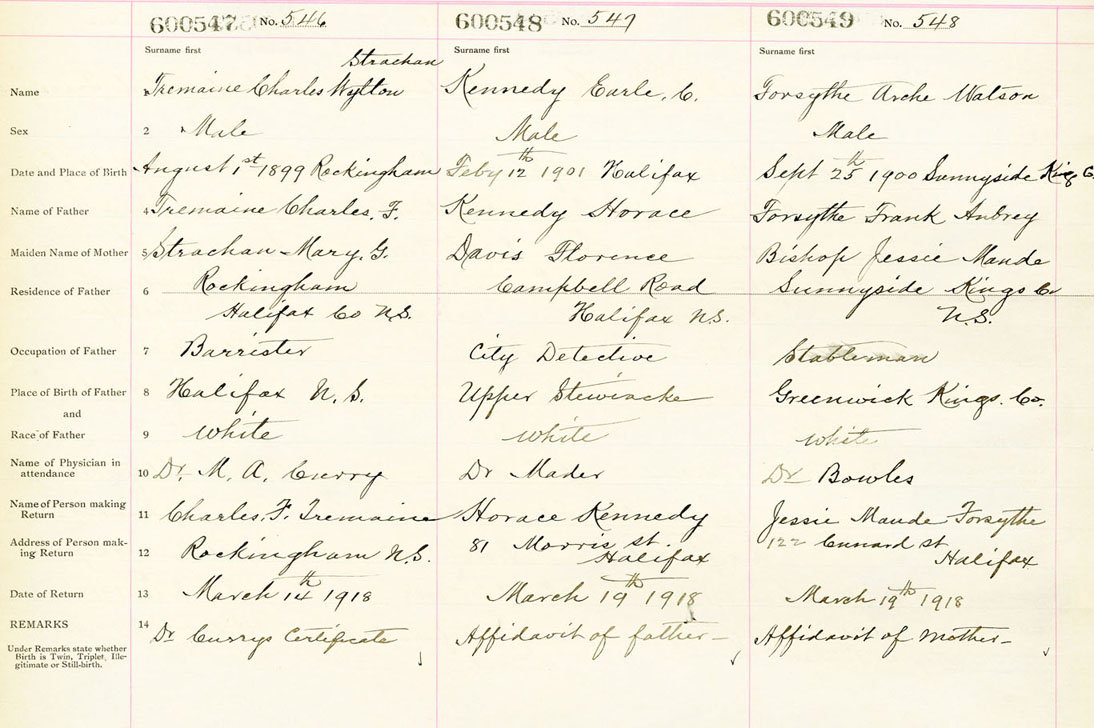 600547 No. 546 600548 No. 547 600549 No. 548
Surname first Surname first Surname first
Strachan
Name 1 Tremaine Charles Wylton Kennedy Earle. C. Forsythe Arche Watson
Sex 2 Male Male Male
Date and Place of Birth August 1st 1899 Rockingham Feby 12th 1901 Halifax Sept 25th 1900 Sunnyside Kings C
Name of Father 4 Tremaine Charles. F. Kennedy Horace Forsythe Frank Aubrey
Maiden Name of Mother 5 Strachan Mary. G. Davis Florence Bishop Jessie Maude
Residence of Father 6 Rockingham Campbell Road Sunnyside Kings Co
Halifax Co N.S. Halifax N.S. N.S.
Occupation of Father 7 Barrister City Detective Stableman
Place of Birth of Father 8 Halifax N.S. Upper Stewiacke Greenwick Kings. Co.
and
Race of Father 9 White White White
Name of Physician in
attendance 10 Dr. M. A. Curry Dr Mader Dr Bowles
Name of Person making
Return 11 Charles. F. Tremaine Horace Kennedy Jessie Maude Forsythe
Address of Person mak-
ing Return 12 Rockingham N.S. 81 Morris st. 122 Cunnard st
Halifax Halifax
Date of Return 13 March 14th 1918 March 19th 1918 March 19th 1918
REMARKS 14 Dr Currys Certificate Affidavit of father- Affidavit of Mother-
Under Remarks state whether
Birth is Twin, Triplet, Ille-
gitimate or Still-birth.